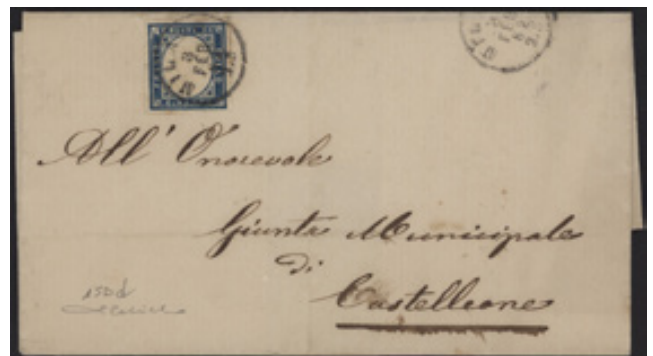 All' Onorevole
Giunta Municipale
di
Castelleone
15Dd